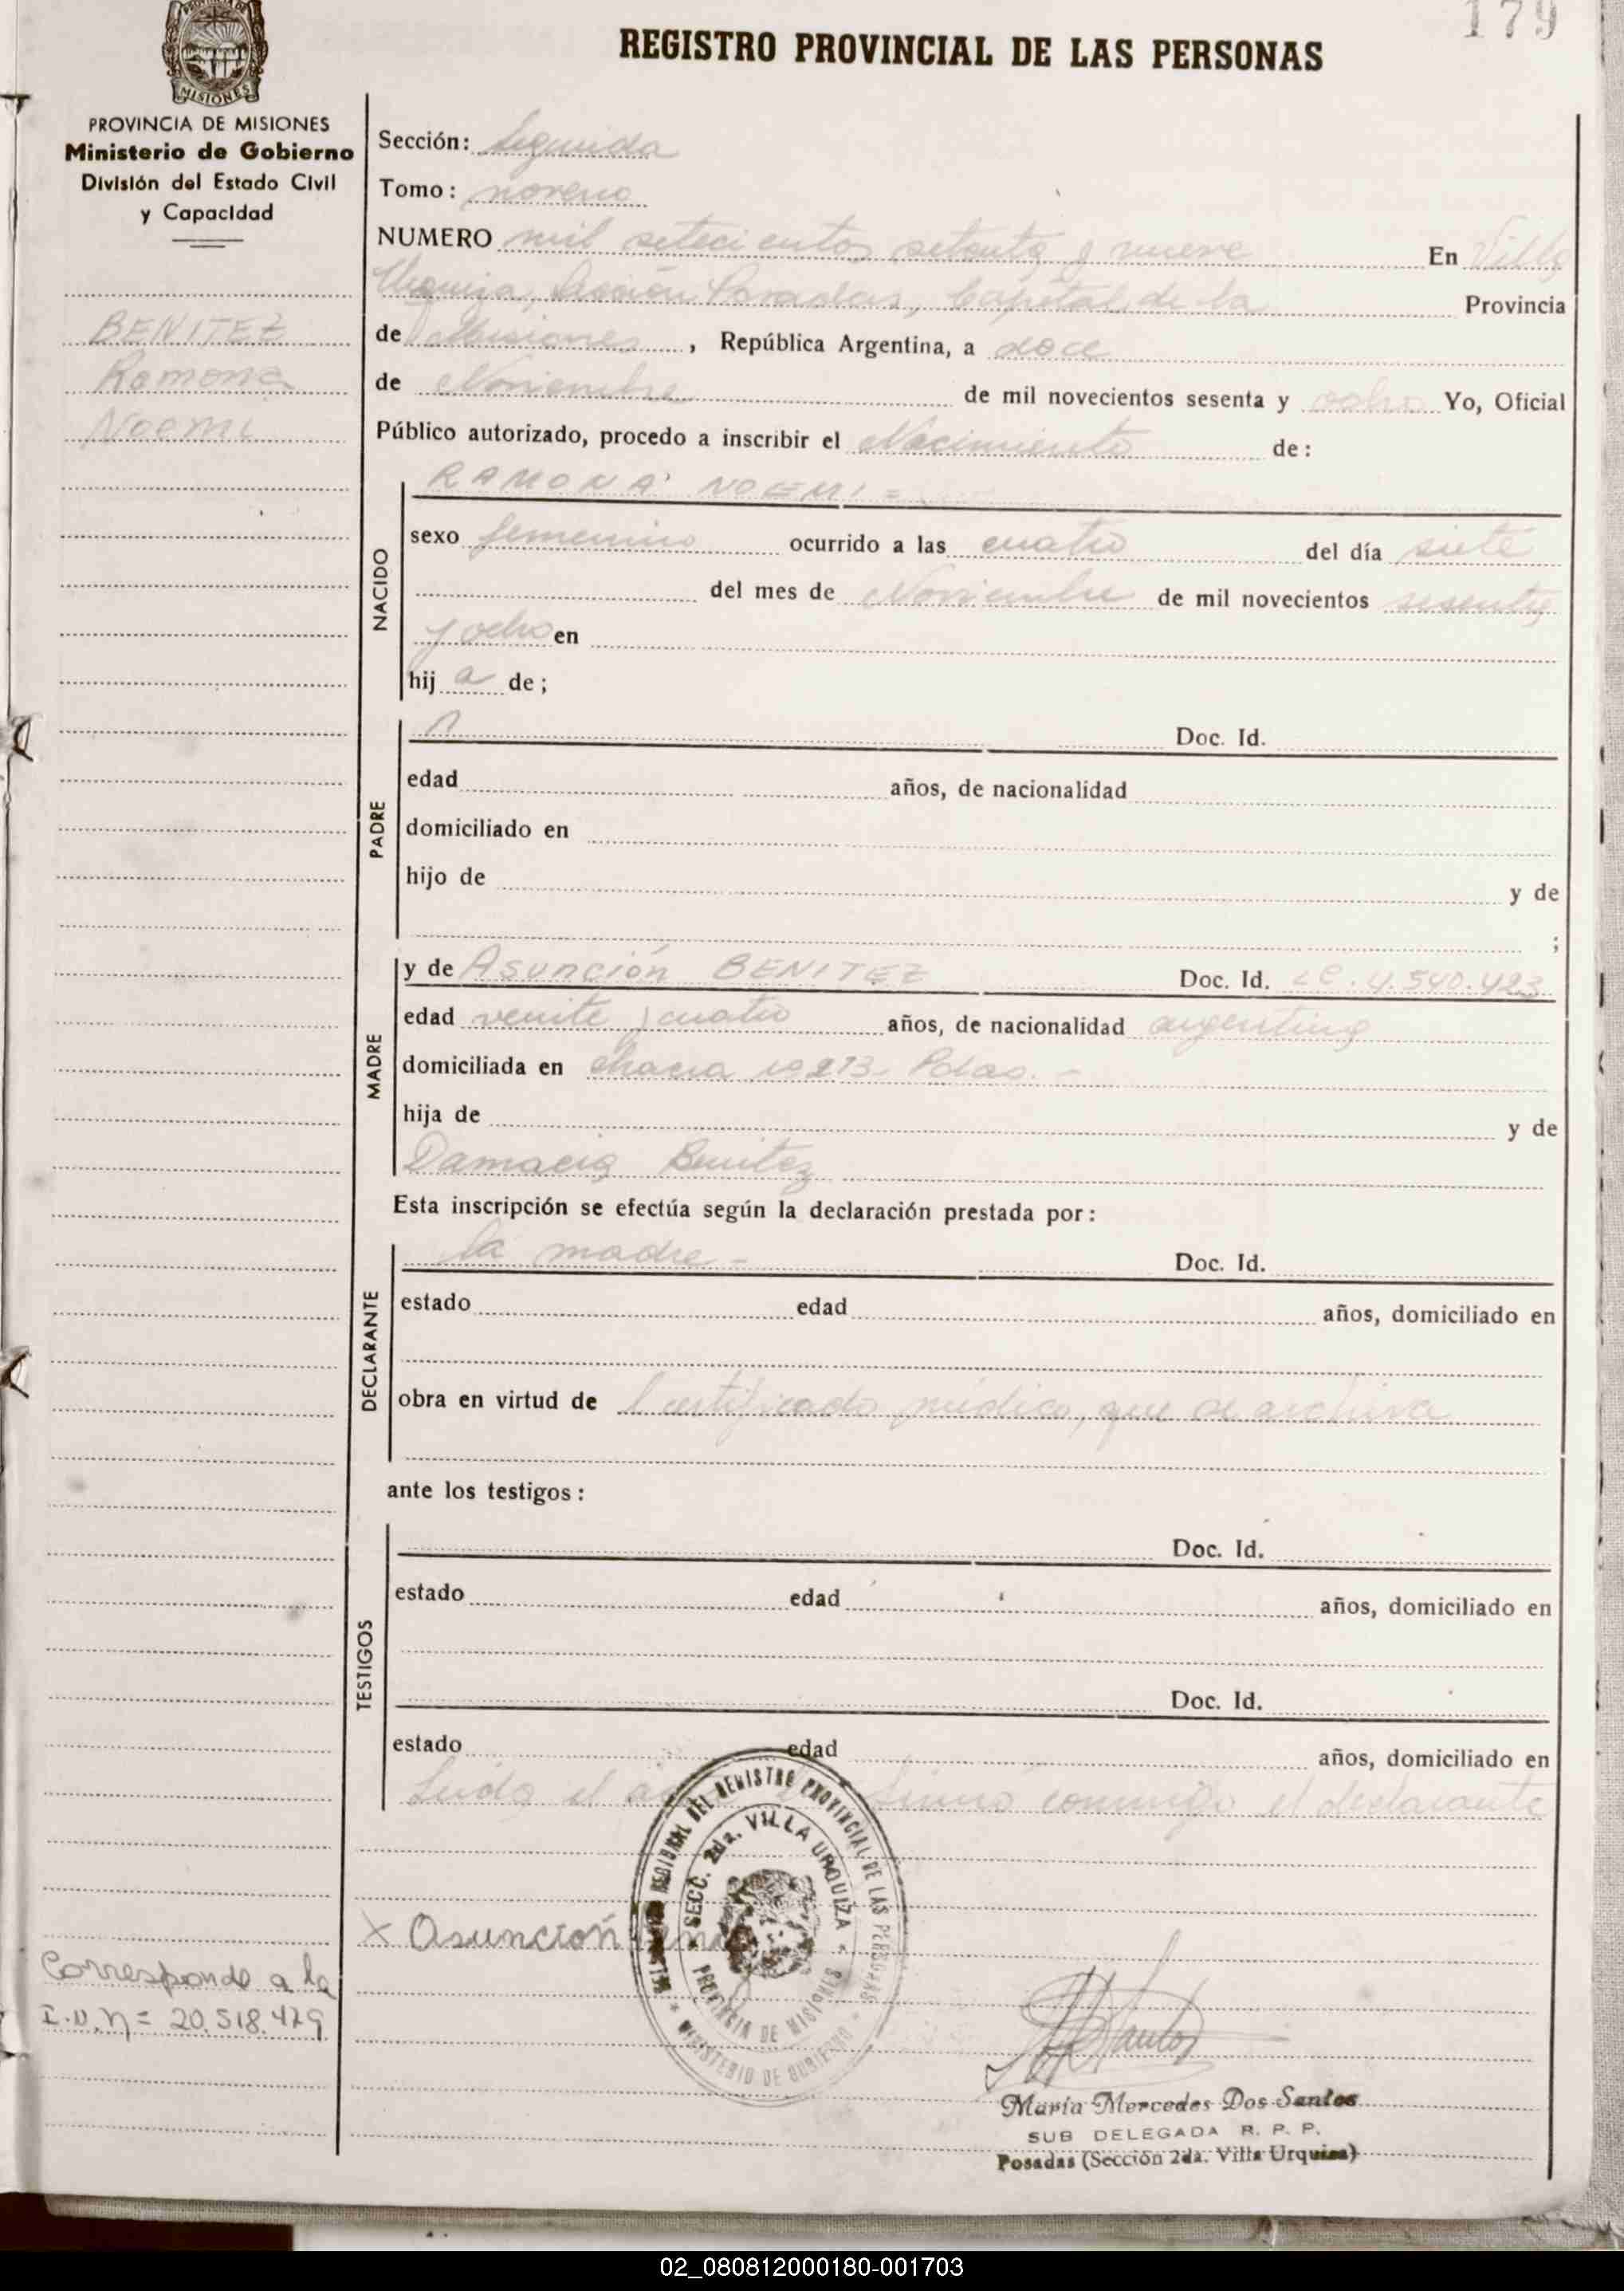 179
REGISTRO PROVINCIAL DE LAS PERSONAS
MISIONES
PROVINCIA DE MISIONES
Ministerio de Gobierno
División del Estado Civil
y Capacidad
BENITEZ
Ramona
Noemi
Sección: Segunda
Tomo: noveno
NUMERO mil setecientos setenta y nueve En Villa
Urquiza, Sección Posadas, Capital de la Provincia
de Misiones, República Argentina, a doce
de Noviembre de mil novecientos sesenta y ocho Yo, Oficial
Público autorizado, procedo a inscribir el Nacimiento de:
RAMONA NOEMI =
NACIDO
sexo femenino ocurrido a las cuatro del día siete
del mes de Noviembre de mil novecientos sesenta
y ocho en
hij a de ;
PADRE
Doc. Id.
edad años, de nacionalidad
domiciliado en
hijo de y de
;
MADRE
y de Asunción BENITEZ Doc. Id. LC. 4.540.423
edad veinte y cuatro años, de nacionalidad argentina
domiciliada en chacra nº 273- Pdas. -
hija de y de
Damacia Benitez
Esta inscripción se efectúa según la declaración prestada por :
DECLARANTE
la madre - Doc. Id.
estado edad años, domiciliado en
obra en virtud de Certificado médico, que se archiva
ante los testigos :
TESTIGOS
Doc. Id.
estado edad años, domiciliado en
Doc. Id.
estado edad años, domiciliado en
Leída el firmó conmigo el declarante
REGIONAL DEL REGISTRO PROVINCIAL DE LAS PERSONAS
SECC. 2da. VILLA URQUIZA
PROVINCIA DE MISIONES
MINISTERIO DE GOBIERNO
X Asunción
Corresponde a la
I.D. n= 20.518.479
María Mercedes Dos Santos
SUB DELEGADA R. P. P.
Posadas (Sección 2da. Villa Urquiza)
02_080812000180-001703